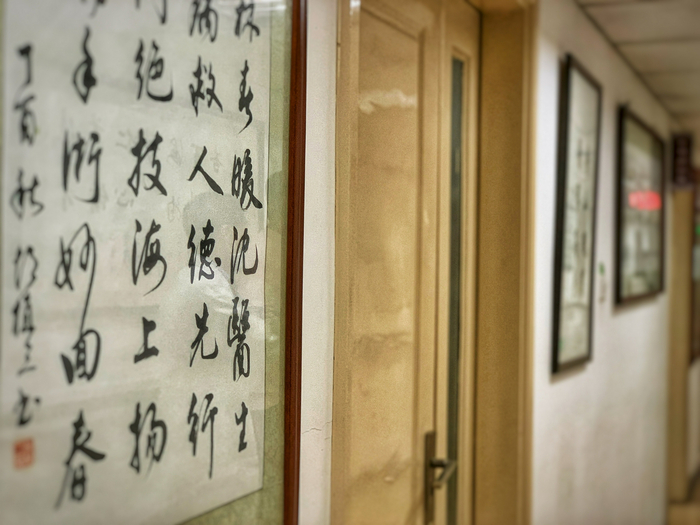 林春暖沈醫生
病救人德先行
絕技海上揚
手術妙回春
丁酉秋